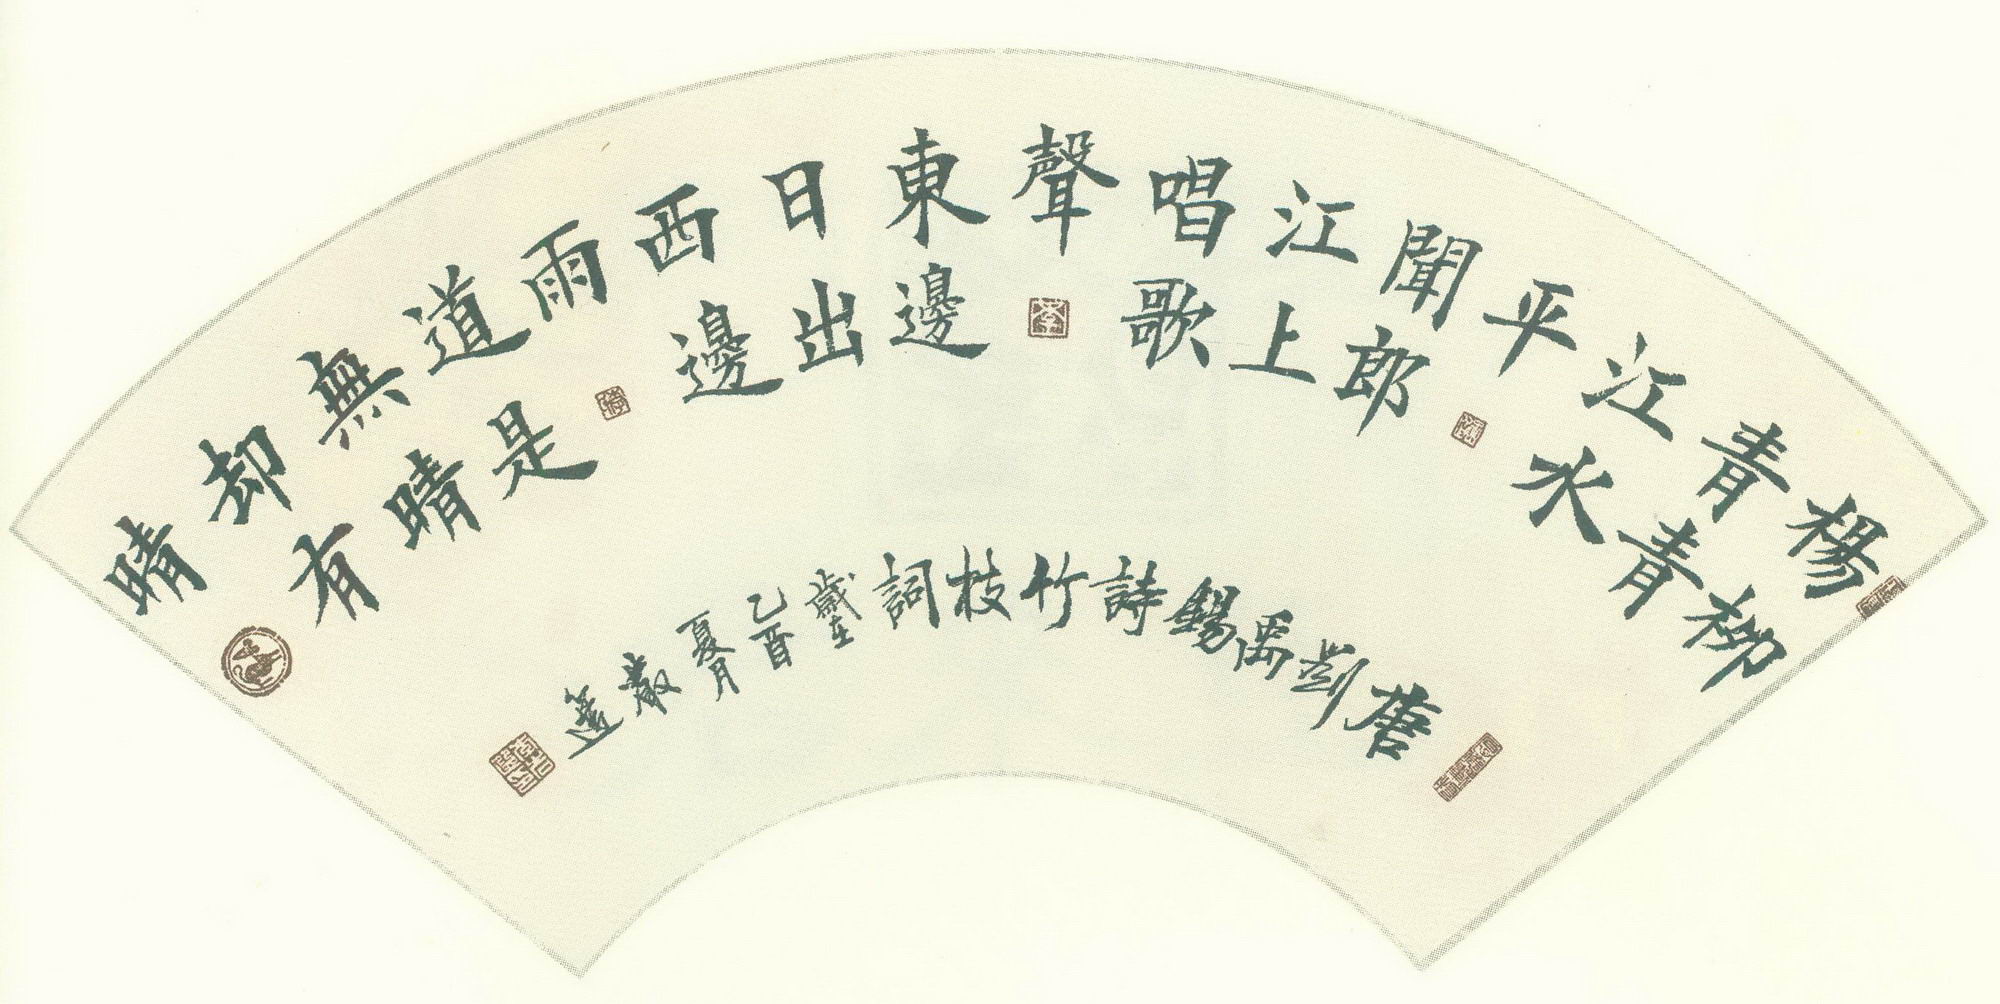 楊柳
青青
江水
平
聞郎
江上
唱歌
聲
東邊
日出
西邊
雨
道是
無晴
却有
晴
唐劉禹錫詩竹枝詞歲在乙酉夏月